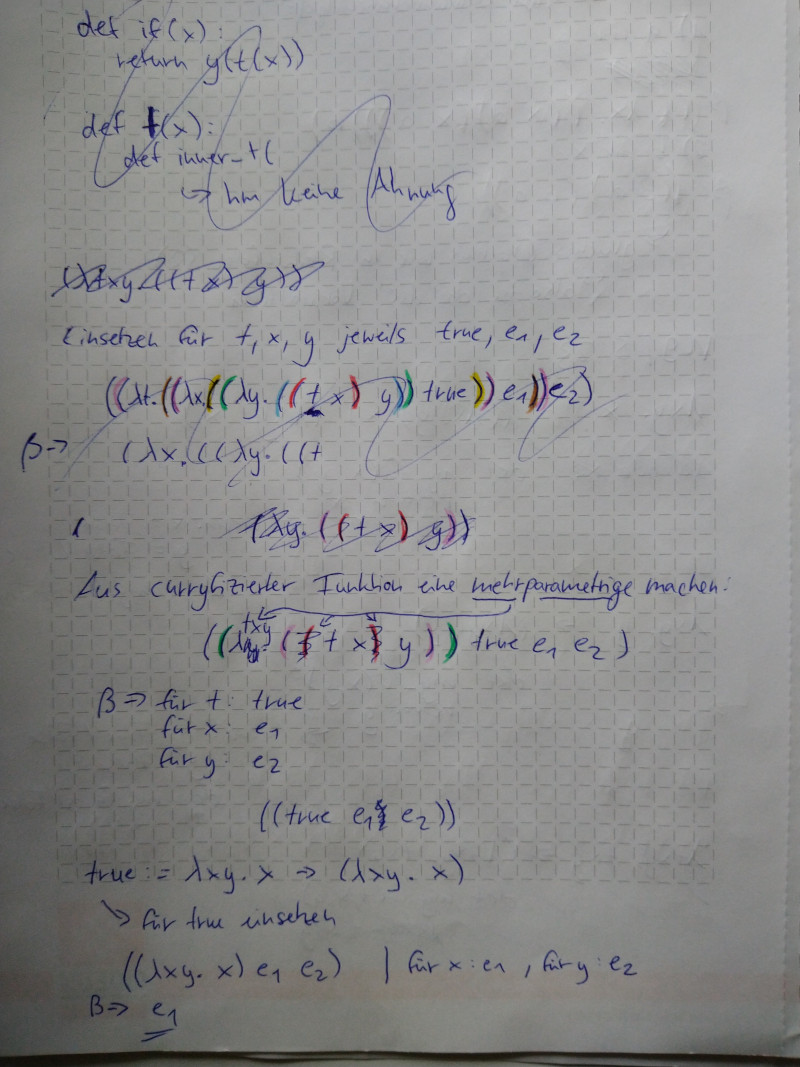 def if(x):
return y(t(x))
def t(x):
def inner_t(
↳ hm keine Ahnung
Einsetzen für t, x, y jeweils true, e1, e2
((λt.((λx.((λy.((t x) y)) true)) e1)) e2)
β→ (λx.((λy.((t
(
(λy.((t x) y))
Aus curryfizierter Funktion eine mehrparametrige machen:
((λtxy. ( t x y )) true e1 e2)
β⇒ für t: true
für x: e1
für y: e2
((true e1 e2))
true := λxy.x → (λxy. x)
↳ für true einsetzen
((λxy. x) e1 e2) | für x: e1, für y: e2
β⇒ e1